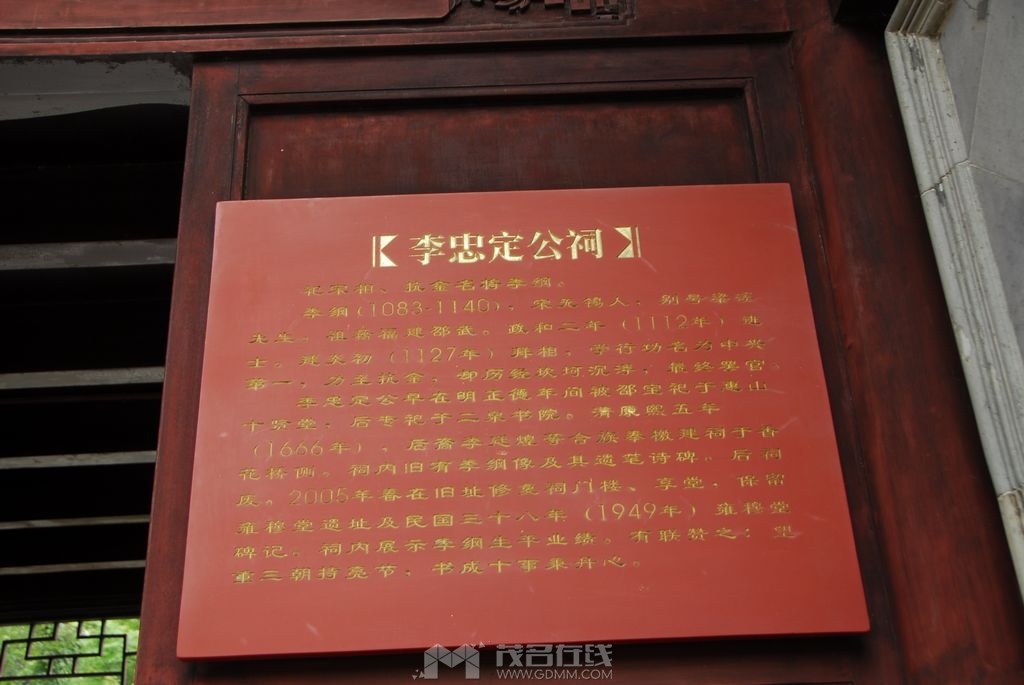 【李忠定公祠】
祀宋相、抗金名将李纲。
李纲(1083-1140)，宋无锡人，别号梁溪
先生，祖籍福建邵武。政和二年（1112年）进
士。建炎初（1127年）拜相，学行功名为中兴
第一，力主抗金，却历经坎坷沉浮，最终罢官。
李忠定公早在明正德年间被邵宝祀于惠山
十贤堂，后专祀于二泉书院。清康熙五年
（1666年），后裔李廷煌等合族奉檄建祠于香
花桥侧。祠内旧有李纲像及其遗笔诗碑。后祠
废。2005年春在旧址修复祠门楼、享堂，保留
雍穆堂遗址及民国三十八年（1949年）雍穆堂
碑记。祠内展示李纲生平业绩。有联赞之：望
重三朝持亮节，书成十事秉丹心。
茂名在线
WWW.GDMM.COM